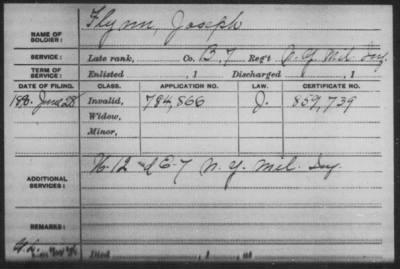 NAME OF SOLDIER: Flynn, Joseph
SERVICE: Late rank, Co. B. 7 Reg't N. Y. Mil. Inf.
TERM OF SERVICE: Enlisted , 1 Discharged , 1
DATE OF FILING. CLASS. APPLICATION NO. LAW. CERTIFICATE NO.
1890. June 28 Invalid, 794,866 J. 859,739
Widow,
Minor,
ADDITIONAL SERVICES: H. 12 & E. 7 N. Y. Mil. Inf.
REMARKS:
Died , 1 , at